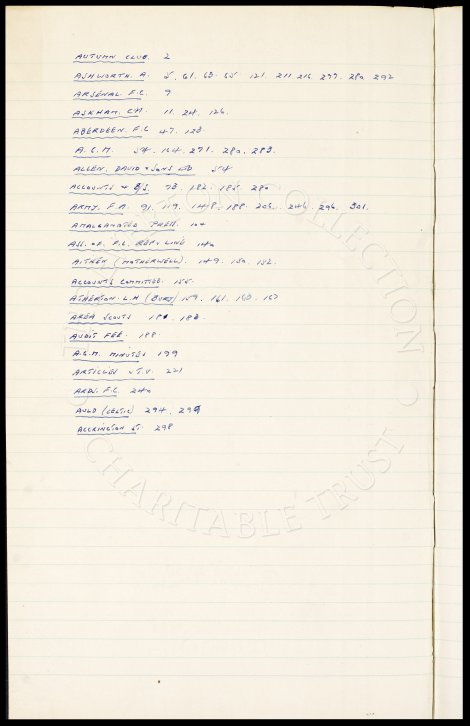 AUTUMN CLUB. 2
ASHWORTH. A. 5. 61. 63. 65. 121. 211. 216. 277. 280. 292
ARSENAL F.C. 9
ASKHAM. 11. 24. 126.
ABERDEEN. F.C. 47. 123.
A.G.M. 54. 164. 271. 280. 283.
ALLEN. DAVID & SONS LTD 54
ACCOUNTS & B/S. 73. 182. 185. 280.
ARMY. F.A. 91. 119. 148. 188. 206. 246. 296. 301.
AMALGAMATED PRESS. 104
ASS. OF. F.L. REF. & LINE 140
AITKEN (MOTHERWELL). 149. 150. 152.
ACCOUNTS COMMITTEE. 155.
ATHERTON. L.H (BURY) 159. 161. 163. 167
AREA SCOUTS 183.
AUDIT FEE. 188.
A.G.M. MINUTES 199
ARTICLES T.V. 221
ARDS. F.C. 240
AULD (CELTIC) 294. 295
ACCRINGTON ST. 298
COLLECTION
CHARITABLE TRUST